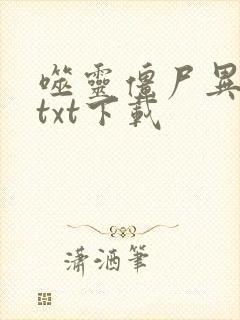 噬靈僵尸異
txt下載
潇酒筆